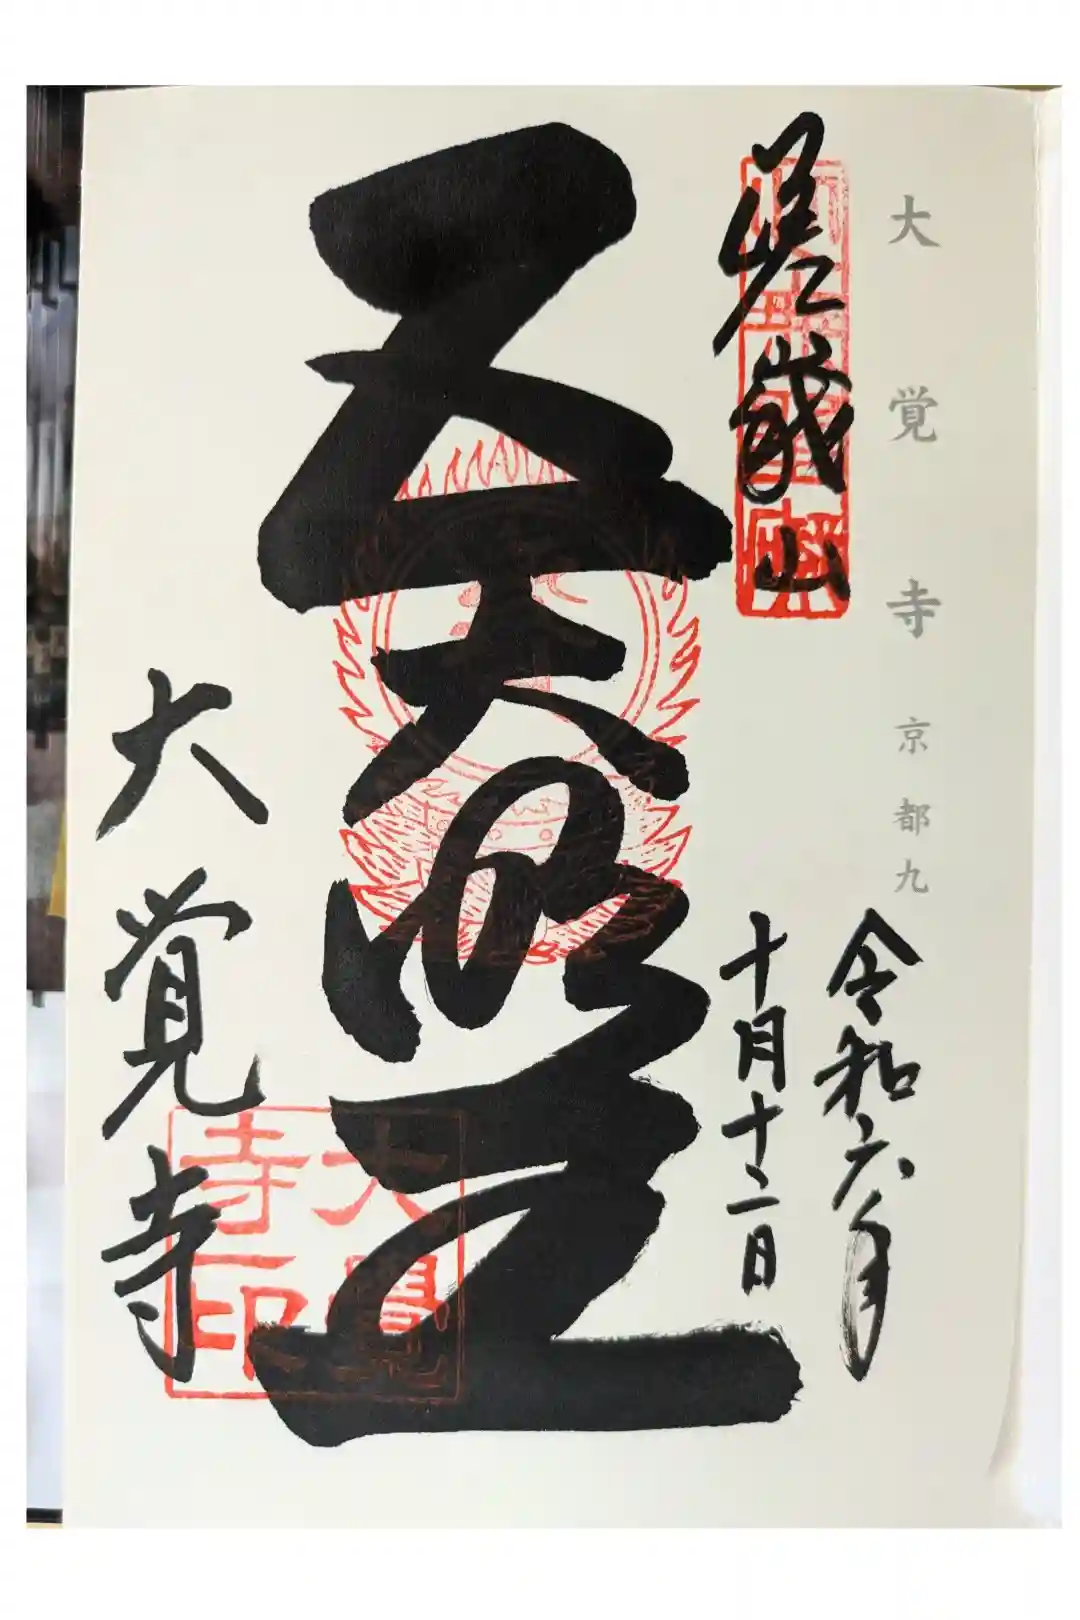 大覚寺 京都九
令和六年
嵯峨山
十月十二日
五大明王
大覚寺
大覺
寺印